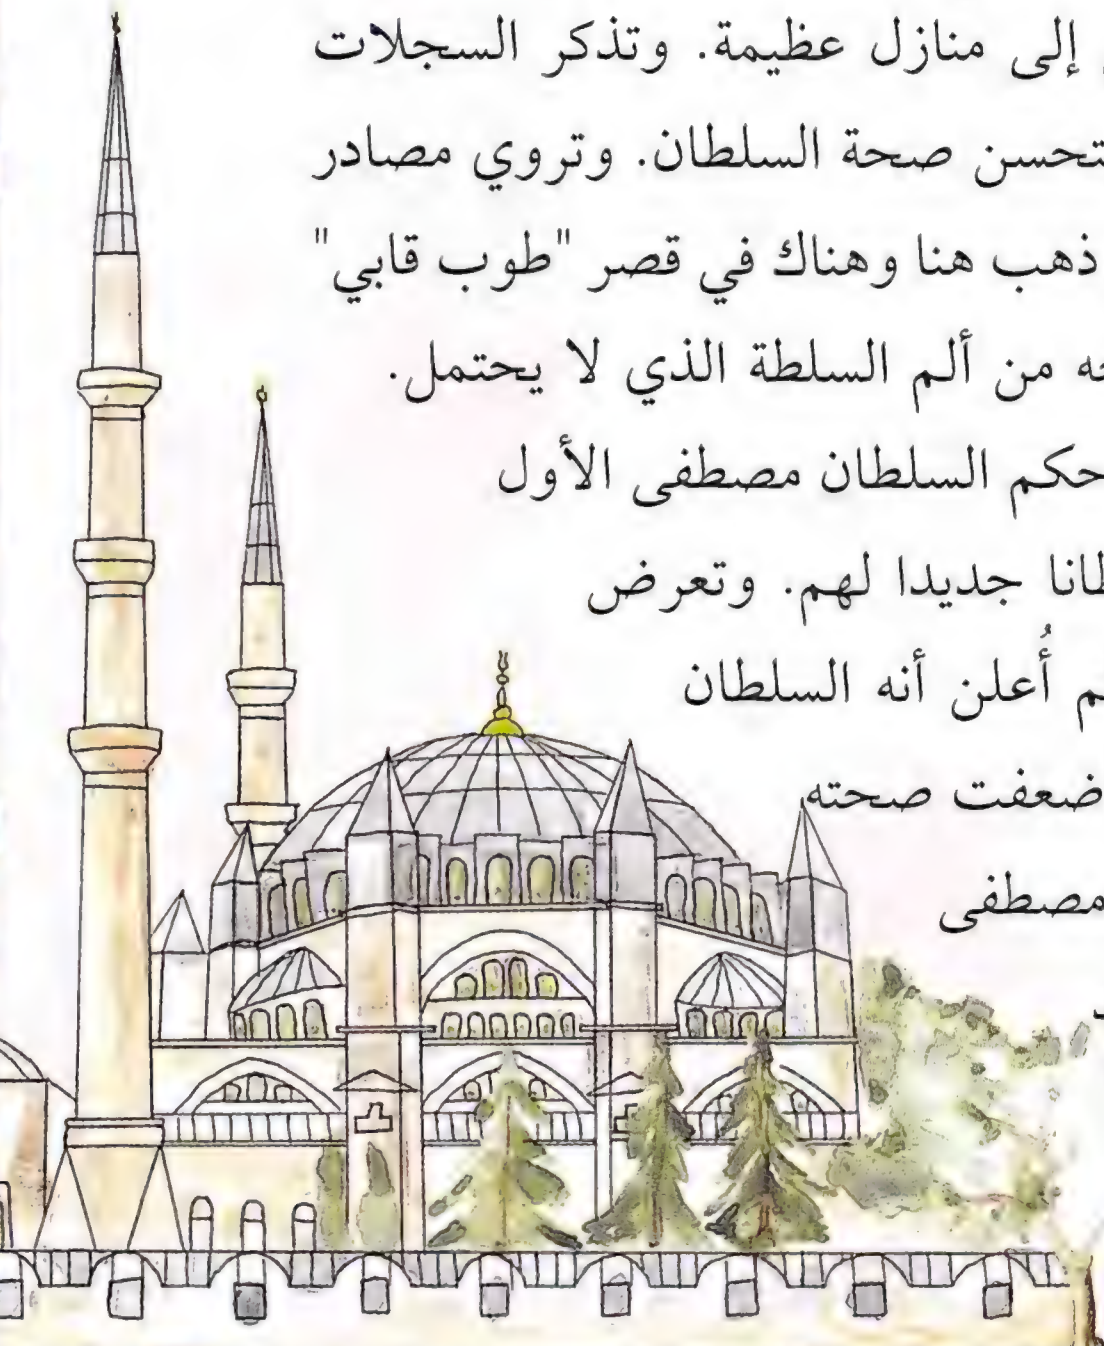 إلى منازل عظيمة. وتذكر السجلات
صحة السلطان. وتروي مصادر
ذهب هنا وهناك في قصر "طوب قابي"
من ألم السلطة الذي لا يحتمل.
حكم السلطان مصطفى الأول
جديدا لهم. وتعرض
أُعلن أنه السلطان
ضعفت صحته
مصطفى